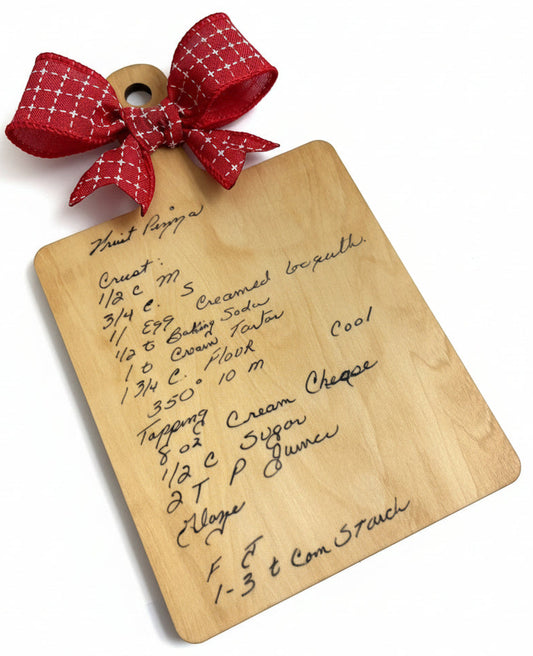 Fruit Pizza
Crust:
1/2 C M
3/4 C. S
1/ Egg Creamed together.
1/2 t Baking Soda
1 t Cream Tartar
1 3/4 C. Floor
350° 10 m Cool
Topping
8 oz Cream Cheese
1/2 C Sugar
2 T P Juince
Glaze
F J
1-3 t Corn Starch